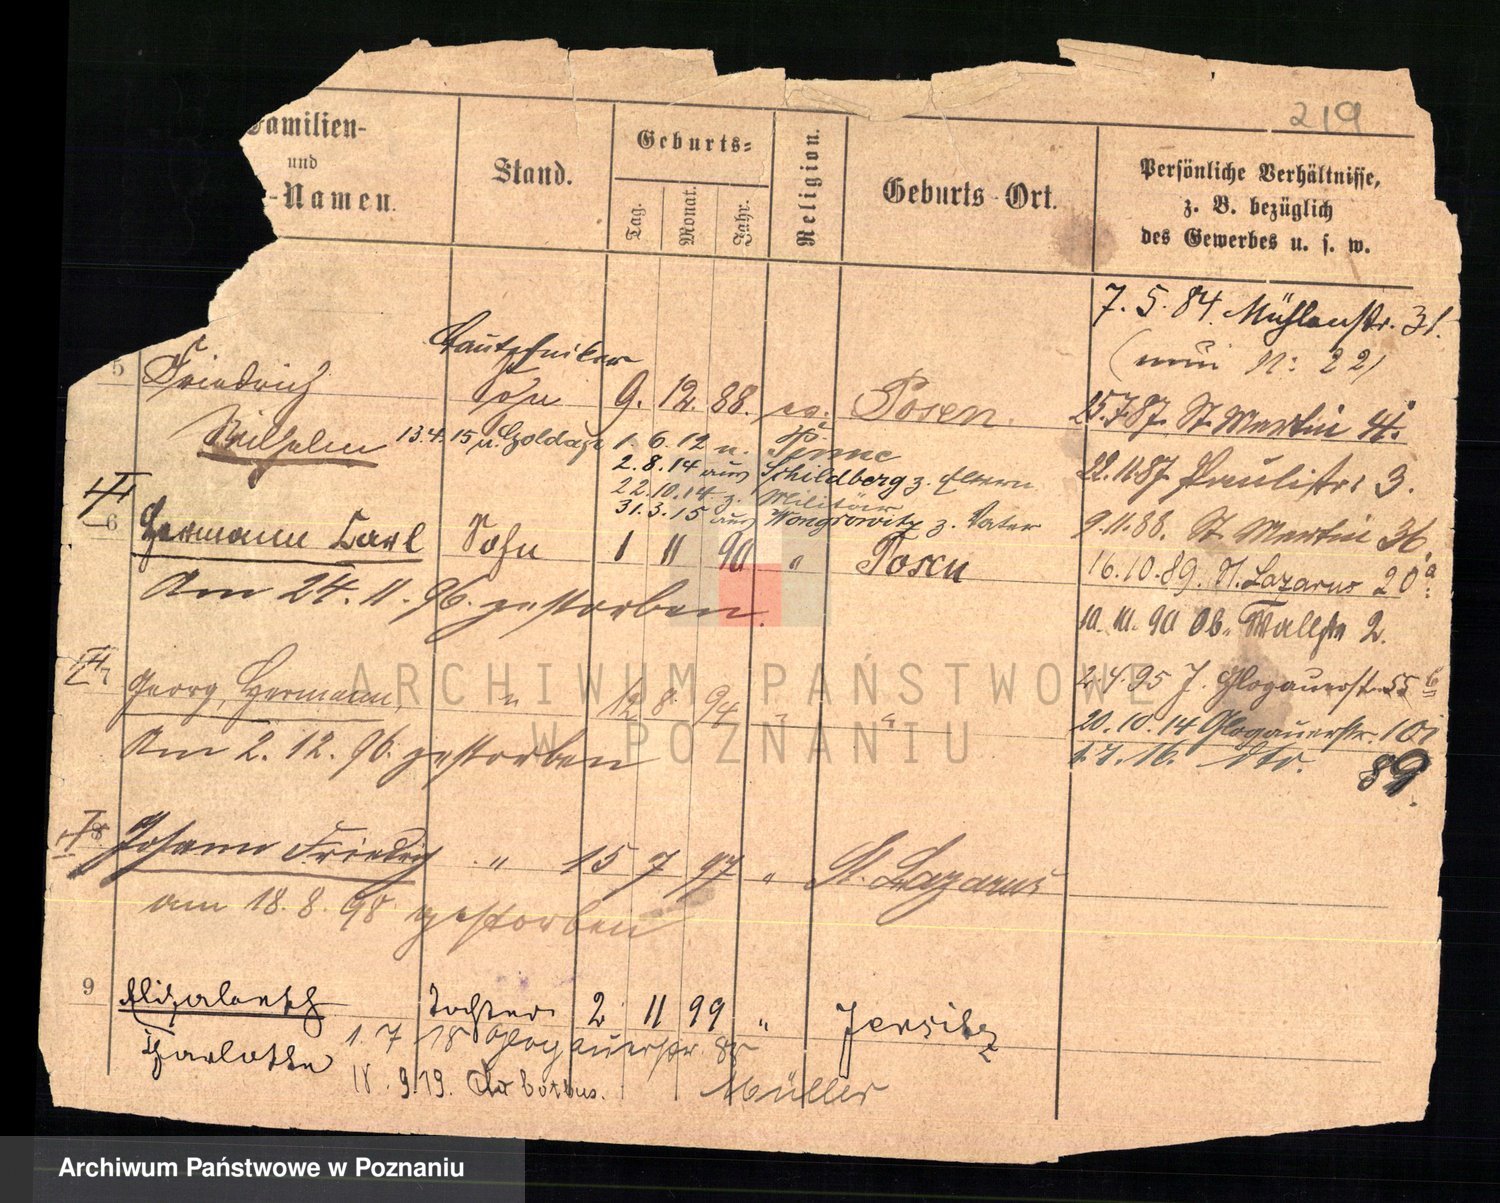 219
Familien-
und
-Namen.
Stand.
Geburts-
Tag.
Monat.
Jahr.
Religion.
Geburts-Ort.
Persönliche Verhältnisse,
z. B. bezüglich
des Gewerbes u. s. w.
7. 5. 84. Mühlenstr. 31.
(nun N: 22)
5 Friedrich Sohn 9. 12. 88. ev. Posen. 25.7.87. St. Martin 4.
Wilhelm 13.4.15 n. 1. 6. 12 n. Pinne
2. 8. 14 aus Schildberg z. Eltern
22.11.87. Paulistr. 3.
22.10.14 z. Militär
31.3.15 aus Wongrowitz z. Vater
9.11.88. St. Martin 36.
6 Hermann Carl Sohn 1 11 90 " Posen
16.10.89. St. Lazarus 20a
Am 24. 11. 96. gestorben.
10. 11. 90 Ob. Wallstr 2.
7 Georg, Hermann, " 12 8. 94 " "
2.4.95 J. Glogauerstr. 55b
20. 10. 14 Glogauerstr. 101
Am 2. 12. 96. gestorben
1.7.16. dto. 89.
8 Johann Friedrich " 15 7 97 " St. Lazarus
am 18. 8. 98 gestorben
9 Elisabeth Tochter 2 11 99 " Jersitz
Charlotte 1. 7 18 Glogauerstr.
18. 9.19. Cottbus.
Müller
ARCHIWUM PAŃSTWOWE
W POZNANIU
Archiwum Państwowe w Poznaniu